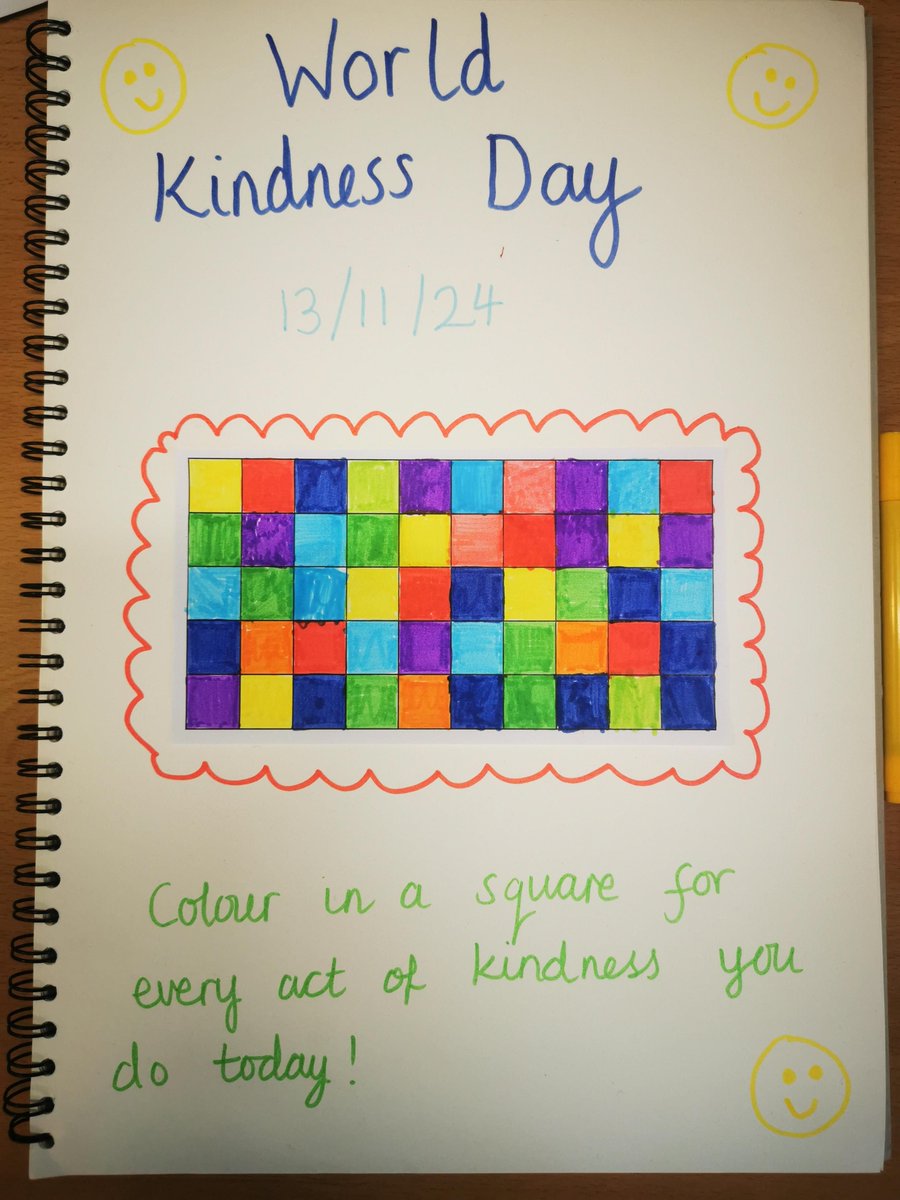 World
Kindness Day
13/11/24
Colour in a square for
every act of kindness you
do today!